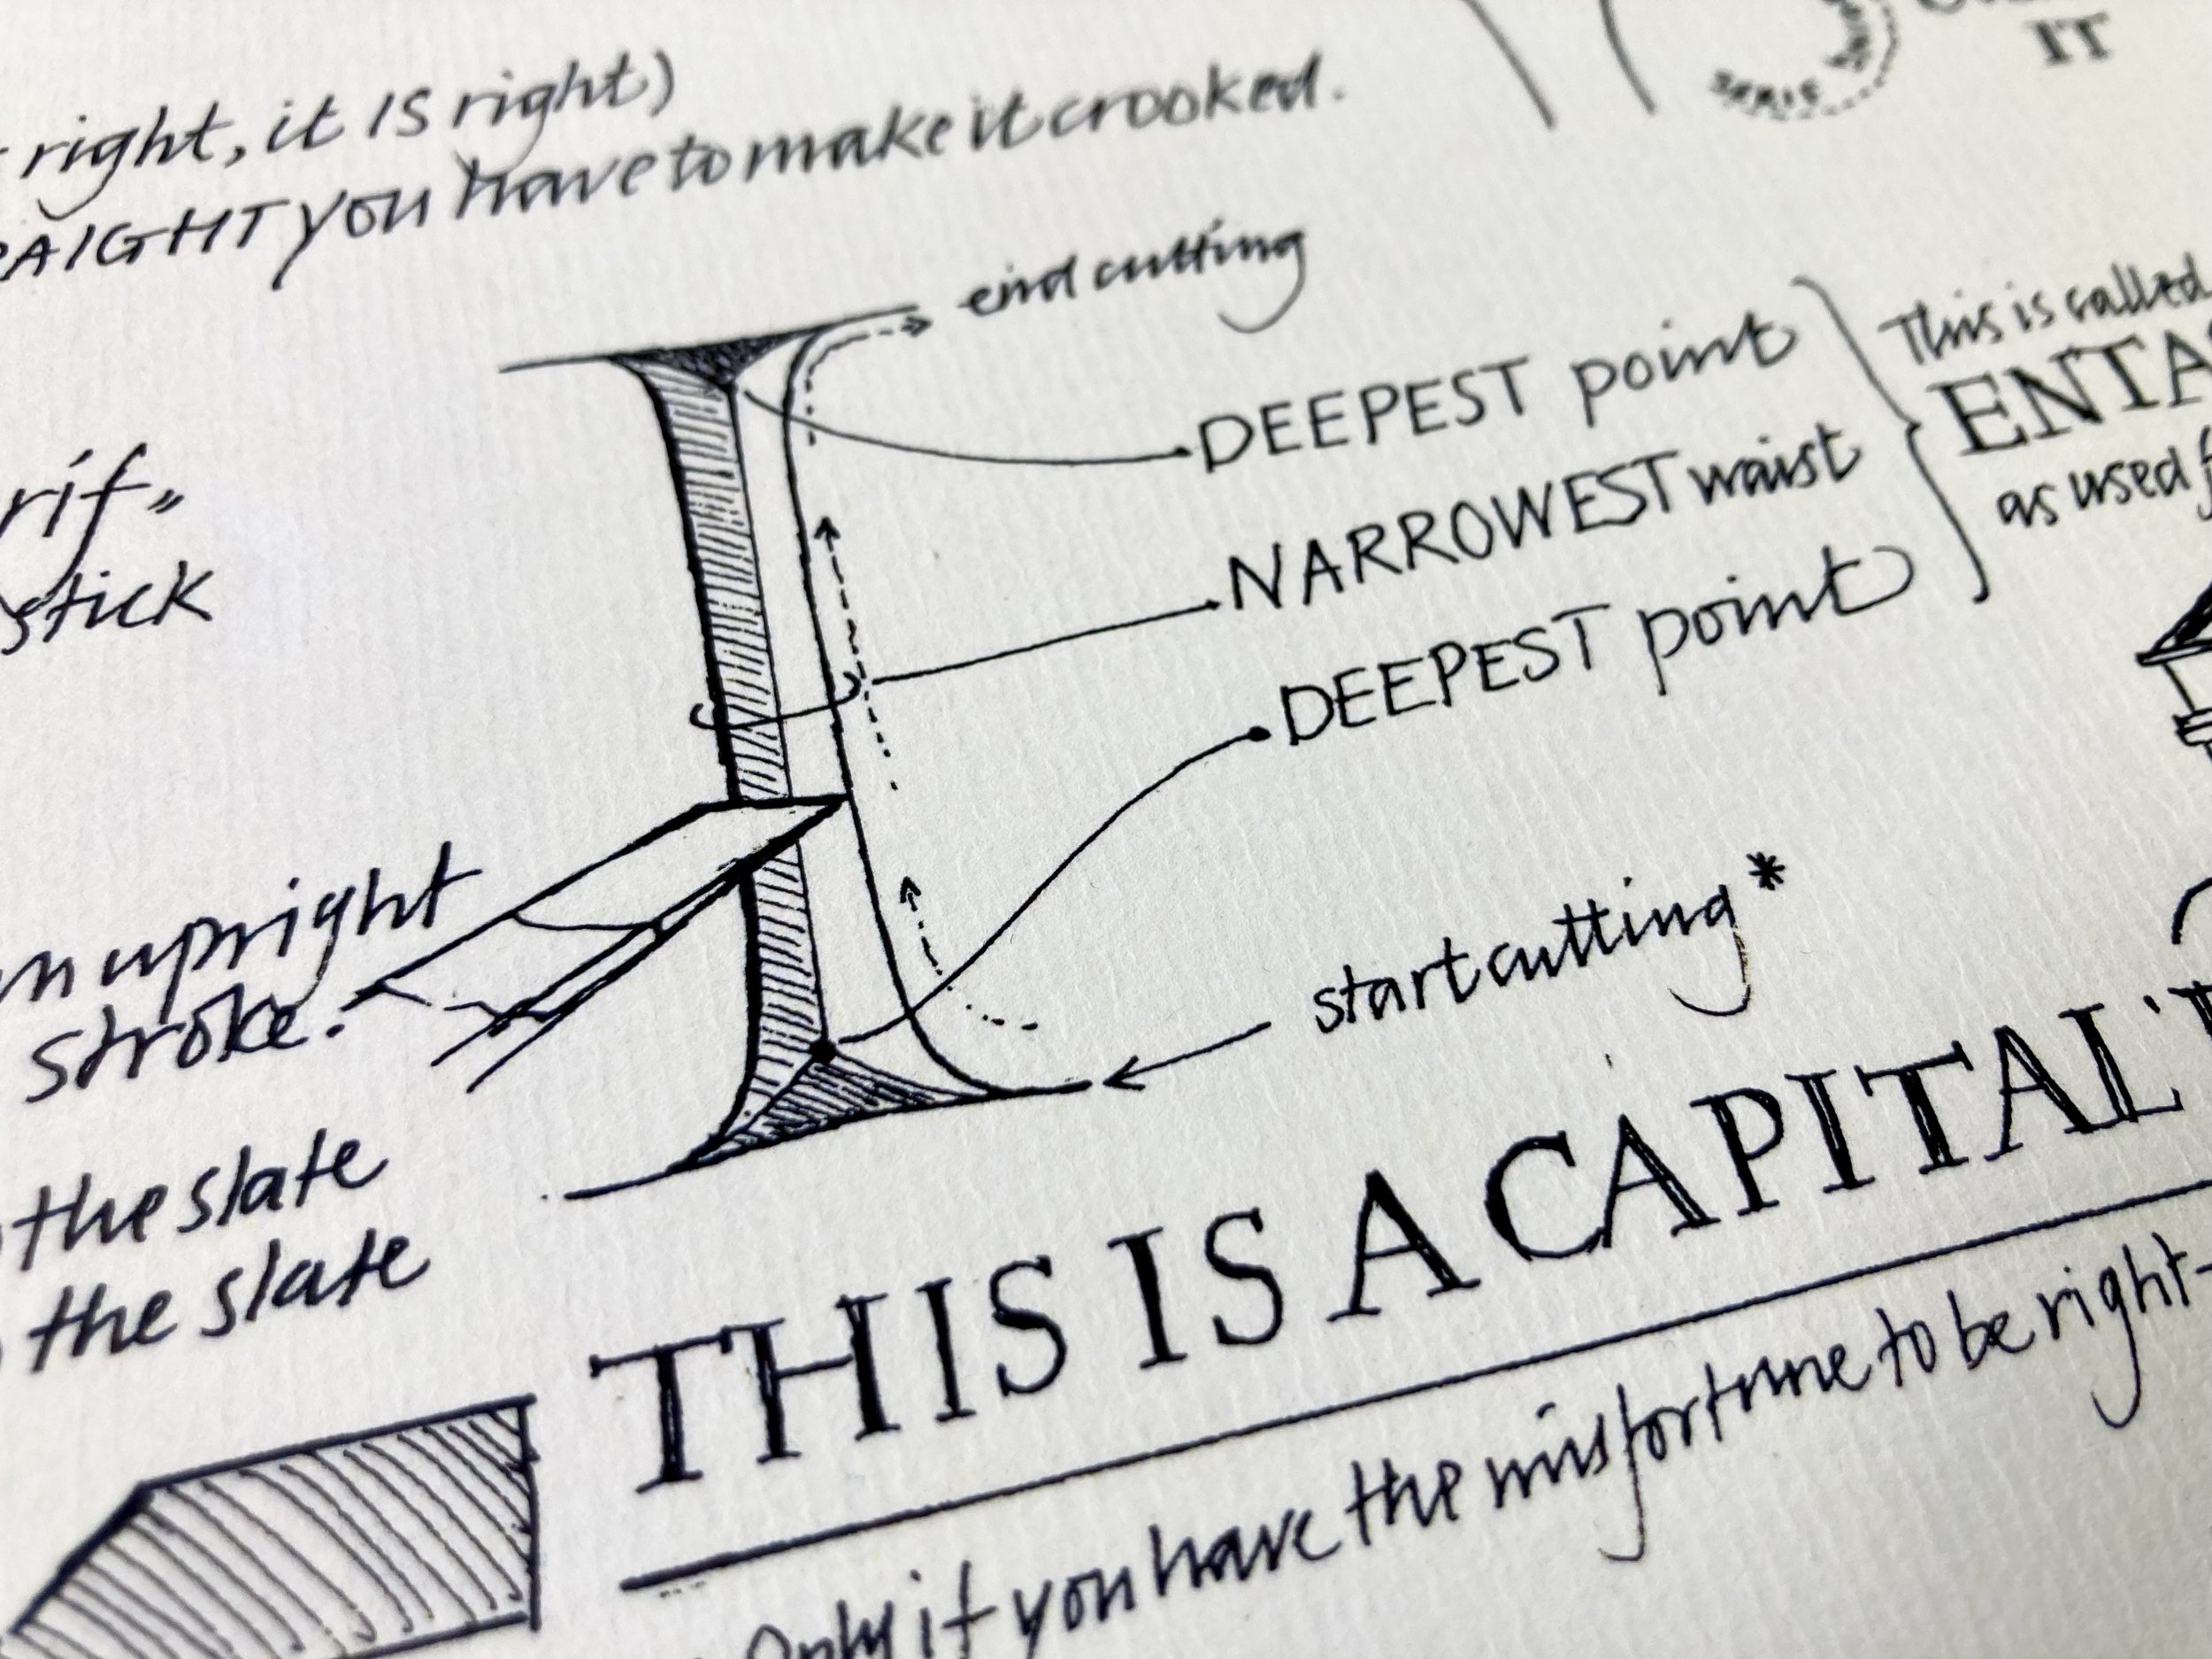 right, it IS right)
AIGHT you have to make it crooked.
IT
end cutting
DEEPEST point
NARROWEST waist
DEEPEST point
This is called
ENTA
as used f
rif"
stick
n upright
stroke.
start cutting*
the slate
the slate
THIS IS A CAPITAL 'I
Only if you have the misfortune to be right-